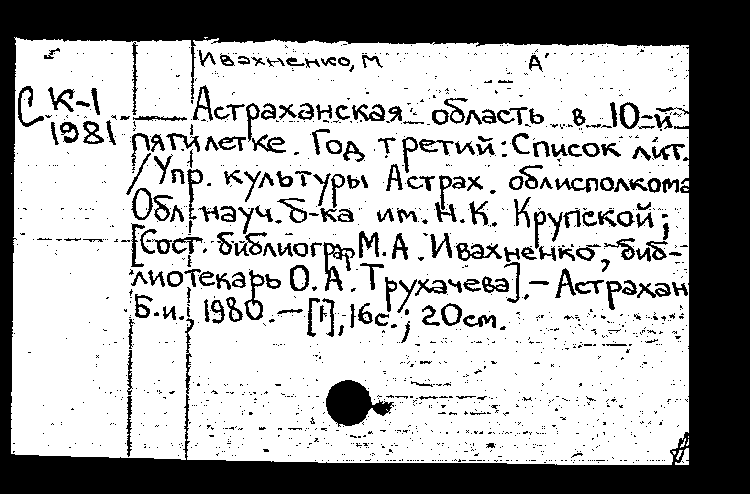 Ивахненко, М А
С К-1
1981
Астраханская область в 10-й
пятилетке. Год третий: Список лит.
/Упр. культуры Астрах. облисполкома
Обл. науч. б-ка им. Н.К. Крупской;
[Сост. библиограф М.А. Ивахненко, биб-
лиотекарь О.А. Трухачева]. — Астрахан
Б.и., 1980. — [1], 16с.; 20см.